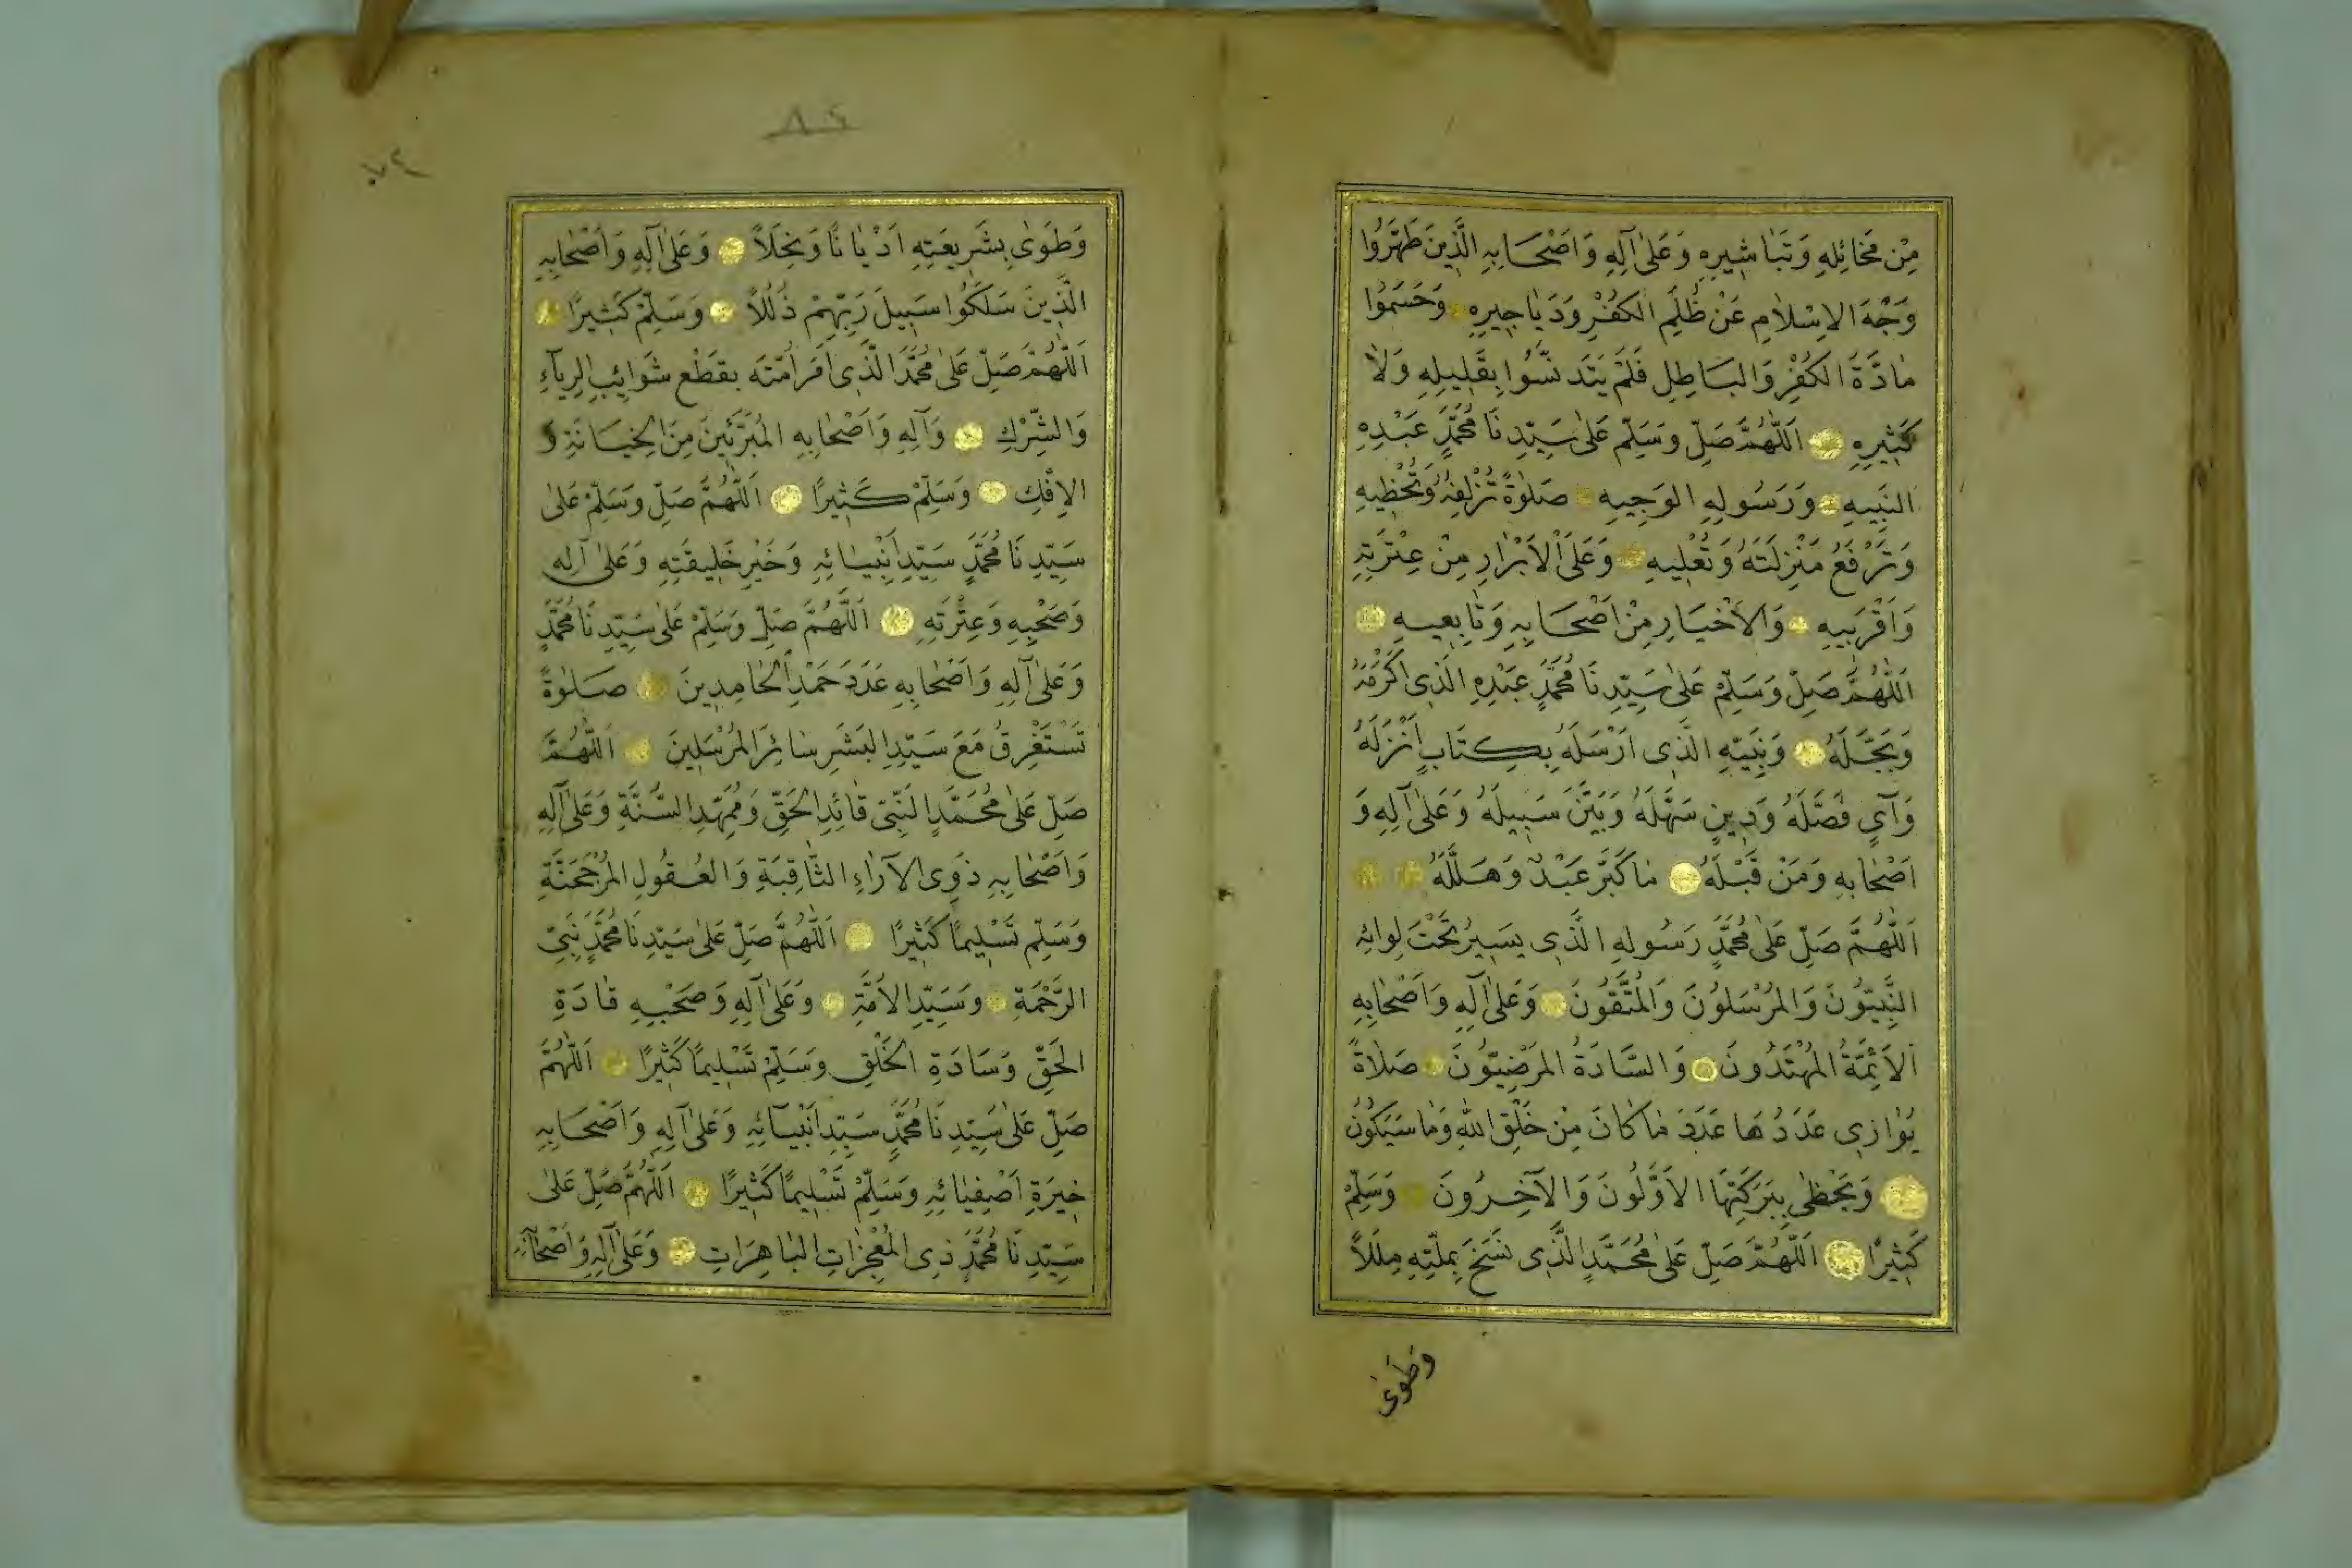 مِنْ مَخَائِلِهِ وَتَبَاشِيرِهِ وَعَلٰى آلِهِ وَاَصْحَابِهِ الَّذِينَ طَهَّرُوا
وَجْهَ الاِسْلَامِ عَنْ ظُلَمِ الكُفْرِ وَدَيَاجِيرِهِ وَحَسَمُوا
مَادَّةَ الكُفْرِ وَالبَاطِلِ فَلَمْ يَتَدَنَّسُوا بِقَلِيلِهِ وَلَا
كَثِيرِهِ اَللّٰهُمَّ صَلِّ وَسَلِّمْ عَلٰى سَيِّدِنَا مُحَمَّدٍ عَبْدِهِ
النَّبِيهِ وَرَسُولِهِ الوَجِيهِ صَلٰوةً تُزْلِفُهُ وَتُحْظِيهِ
وَتَرْفَعُ مَنْزِلَتَهُ وَتُعْلِيهِ وَعَلَى الْاَبْرَارِ مِنْ عِتْرَتِهِ
وَاَقْرَبِيهِ وَالاَخْيَارِ مِنْ اَصْحَابِهِ وَتَابِعِيهِ
اَللّٰهُمَّ صَلِّ وَسَلِّمْ عَلٰى سَيِّدِنَا مُحَمَّدٍ عَبْدِهِ الَّذِى اَكْرَمَهُ
وَبَجَّلَهُ وَنَبِيِّهِ الَّذِى اَرْسَلَهُ بِكِتَابٍ اَنْزَلَهُ
وَآىٍ فَصَّلَهُ وَدِينٍ سَهَّلَهُ وَبَيَّنَ سَبِيلَهُ وَعَلٰى آلِهِ وَ
اَصْحَابِهِ وَمَنْ قَبْلَهُ مَا كَبَّرَ عَبْدٌ وَهَلَّلَهُ
اَللّٰهُمَّ صَلِّ عَلٰى مُحَمَّدٍ رَسُولِهِ الَّذِى يَسِيرُ تَحْتَ لِوَائِهِ
النَّبِيُّونَ وَالمُرْسَلُونَ وَالمُتَّقُونَ وَعَلٰى آلِهِ وَاَصْحَابِهِ
الاَئِمَّةُ المُهْتَدُونَ وَالسَّادَةُ المَرْضِيُّونَ صَلَاةً
يُوَازِى عَدَدُهَا عَدَدَ مَا كَانَ مِنْ خَلْقِ اللّٰهِ وَمَا سَيَكُونُ
وَيَحْظٰى بِبَرَكَتِهَا الاَوَّلُونَ وَالآخِرُونَ وَسَلِّمْ
كَثِيرًا اَللّٰهُمَّ صَلِّ عَلٰى مُحَمَّدٍ الَّذِى نَسَخَ بِمِلَّتِهِ مِلَلًا
وَطَوٰى
٨٢
٧٢
وَطَوٰى بِشَرِيعَتِهِ اَدْيَانًا وَنِحَلًا وَعَلٰى آلِهِ وَاَصْحَابِهِ
الَّذِينَ سَلَكُوا سَبِيلَ رَبِّهِمْ ذُلُلًا وَسَلِّمْ كَثِيرًا
اَللّٰهُمَّ صَلِّ عَلٰى مُحَمَّدٍ الَّذِى اَمَرَ اُمَّتَه بِقَطْعِ شَوَائِبِ الرِيآءِ
وَالشِّرْكِ وَآلِهِ وَاَصْحَابِهِ المُبَرَّئِينَ مِنَ الخِيَانَةِ وَ
الاِفْكِ وَسَلِّمْ كَثِيرًا اَللّٰهُمَّ صَلِّ وَسَلِّمْ عَلٰى
سَيِّدِنَا مُحَمَّدٍ سَيِّدِ اَنْبِيَائِهِ وَخَيْرِ خَلِيقَتِهِ وَعَلٰى آلِهِ
وَصَحْبِهِ وَعِتْرَتِهِ اَللّٰهُمَّ صَلِّ وَسَلِّمْ عَلٰى سَيِّدِنَا مُحَمَّدٍ
وَعَلٰى آلِهِ وَاَصْحَابِهِ عَدَدَ حَمْدِ الْحَامِدِينَ صَلٰوةً
تَسْتَغْرِقُ مَعَ سَيِّدِ البَشَرِ سَائِرَ المُرْسَلِينَ اَللّٰهُمَّ
صَلِّ عَلٰى مُحَمَّدٍ النَّبِىِّ قَائِدِ الحَقِّ وَمُمَهِّدِ السُّنَّةِ وَعَلٰى آلِهِ
وَاَصْحَابِهِ ذَوِى الآرَاءِ الثَّاقِبَةِ وَالعُقُولِ المُرْجَحِنَّةِ
وَسَلِّم تَسْلِيمًا كَثِيرًا اَللّٰهُمَّ صَلِّ عَلٰى سَيِّدِنَا مُحَمَّدٍ نَبِىِّ
الرَّحْمَةِ وَسَيِّدِ الاُمَّةِ وَعَلٰى آلِهِ وَصَحْبِهِ قَادَةِ
الحَقِّ وَسَادَةِ الخَلْقِ وَسَلِّمْ تَسْلِيمًا كَثِيرًا اَللّٰهُمَّ
صَلِّ عَلٰى سَيِّدِنَا مُحَمَّدٍ سَيِّدِ اَنْبِيَآئِهِ وَعَلٰى آلِهِ وَاَصْحَابِهِ
خِيَرَةِ اَصْفِيَائِهِ وَسَلِّمْ تَسْلِيمًا كَثِيرًا اَللّٰهُمَّ صَلِّ عَلٰى
سَيِّدِنَا مُحَمَّدٍ ذِى المُعْجِزَاتِ البَاهِرَاتِ وَعَلٰى آلِهِ وَاَصْحَابِهِ